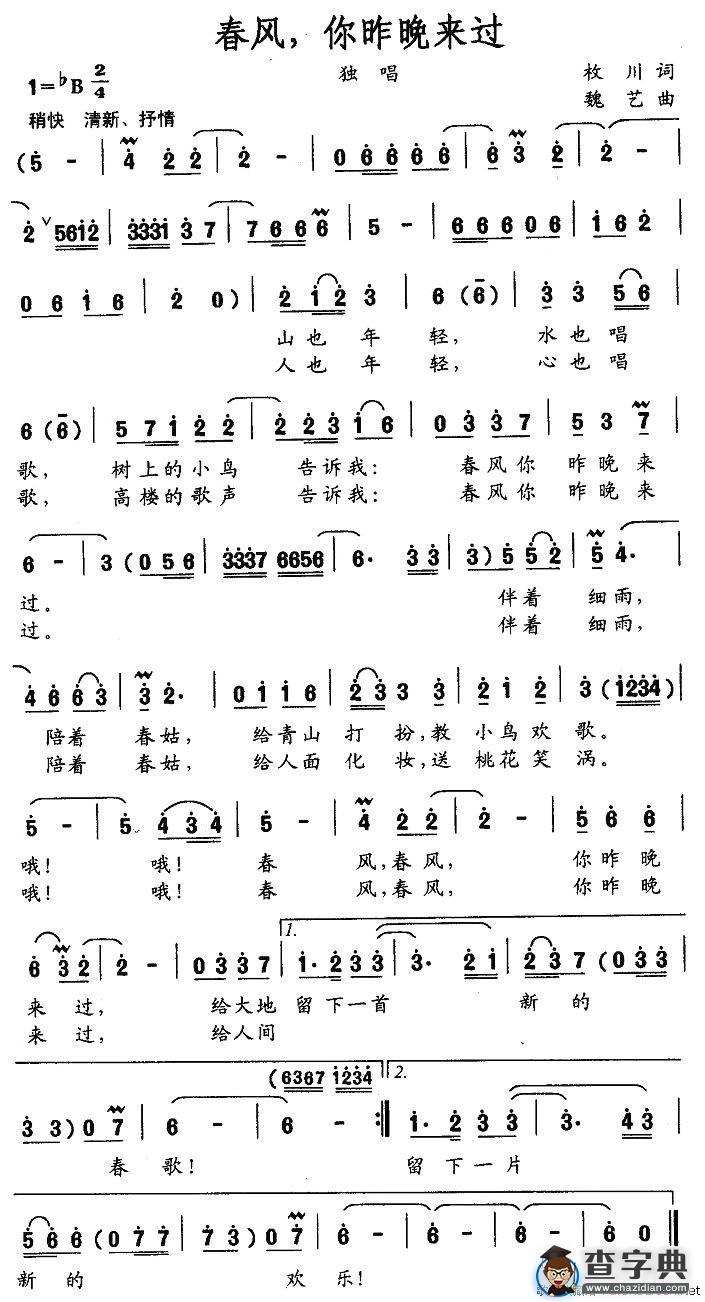 春风，你昨晚来过
独唱
枚川词
1=♭B 2/4
魏艺曲
稍快 清新、抒情
(5 - | 4 2 2 | 2 - | 0 6 6 6 6 | 6 3 2 | 2 -
2 ∨ 5612 | 3331 3 7 | 7 6 6 6 | 5 - | 6 6 6 0 6 | 1 6 2
0 6 1 6 | 2 0) | 2 1 2 3 | 6 (6) | 3 3 5 6
山也年轻， 水也唱
人也年轻， 心也唱
6 (6) | 5 7 1 2 2 | 2 2 3 1 6 | 0 3 3 7 | 5 3 7
歌， 树上的小鸟 告诉我： 春风你 昨晚来
歌， 高楼的歌声 告诉我： 春风你 昨晚来
6 - | 3 (0 5 6 | 3337 6656 | 6· 3 3 | 3) 5 5 2 | 5 4·
过。 伴着 细雨，
过。 伴着 细雨，
4 6 6 3 | 3 2· | 0 1 1 6 | 2 3 3 3 | 2 1 2 | 3 (1234)
陪着 春姑， 给青山 打扮，教 小鸟欢歌。
陪着 春姑， 给人面 化妆，送 桃花笑涡。
5 - | 5 4 3 4 | 5 - | 4 2 2 | 2 - | 5 6 6
哦！ 哦！ 春 风，春风， 你昨晚
哦！ 哦！ 春 风，春风， 你昨晚
1.
6 3 2 | 2 - | 0 3 3 7 | 1· 2 3 3 | 3· 2 1 | 2 3 7 (0 3
来过， 给大地 留下一首 新的
来过， 给人间
(6367 1234 2.
3 3) 0 7 | 6 - | 6 - :| 1· 2 3 3 | 3· 4 3
春歌！ 留下一片
5 6 6 (0 7 7 | 7 3) 0 7 | 6 - | 6 - | 6 - | 6 0
新的 欢乐！
查字典
www.chazidian.com